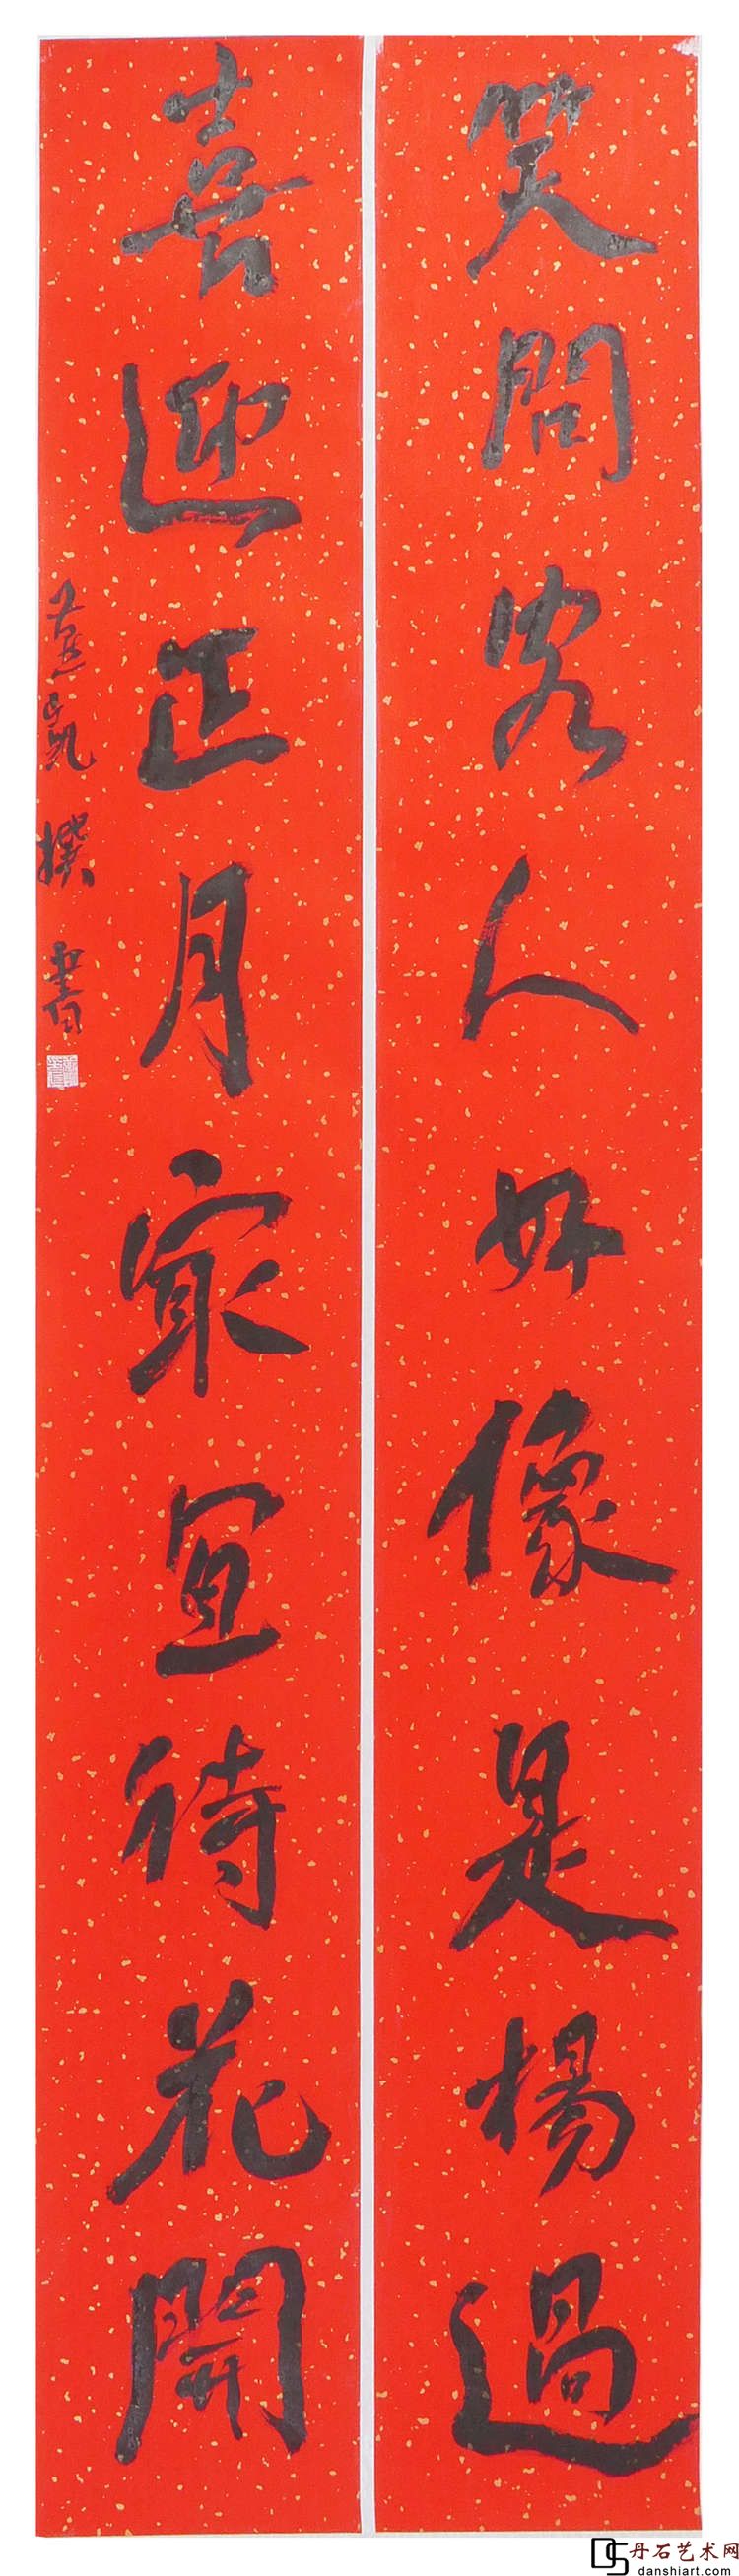 笑問客人好像是楊過
喜迎正月最宜待花開
撰書
丹石艺术网
danshiart.com